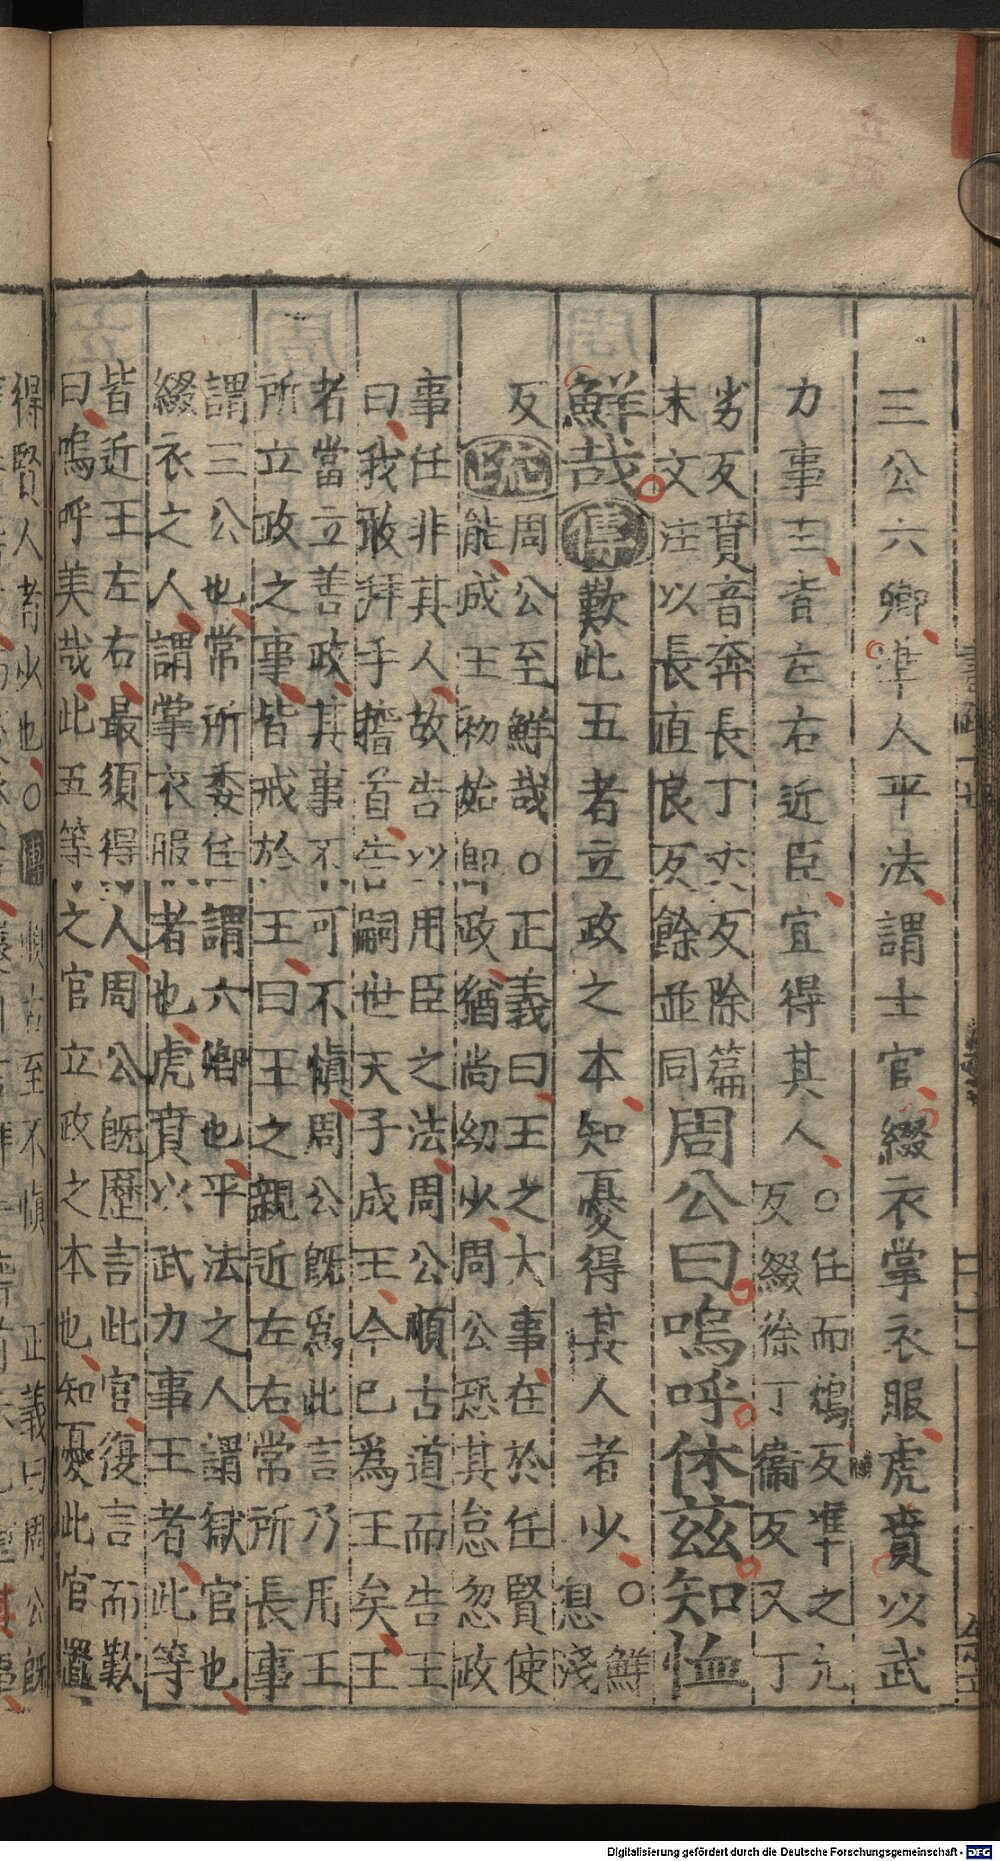 三公六卿準人平法謂士官綴衣掌衣服虎賁以武
力事王皆左右近臣宜得其人○任而鴆反準之允
反綴徐丁衞反又丁
劣反賁音奔長丁丈反除篇
末文注以長直良反餘並同周公曰嗚呼休茲知恤
鮮哉傳歎此五者立政之本知憂得其人者少○鮮
息淺
反疏周公至鮮哉○正義曰王之大事在於任賢使
能成王初始卽政猶尚幼少周公恐其怠忽政
事任非其人故告以用臣之法周公順古道而告王
曰我敢拜手稽首告嗣世天子成王今已爲王矣王
者當立善政其事不可不慎周公旣爲此言乃用王
所立政之事皆戒於王曰王之親近左右常所長事
謂三公也常所委任謂六卿也平法之人謂獄官也
綴衣之人謂掌衣服者也虎賁以武力事王者此等
皆近王左右最須得人周公旣歷言此官復言而歎
曰嗚呼美哉此五等之官立政之本也知憂此官置
得賢人者少也○傳 至不慎 正義曰周公旣
Digitalisierung gefördert durch die Deutsche Forschungsgemeinschaft - DFG